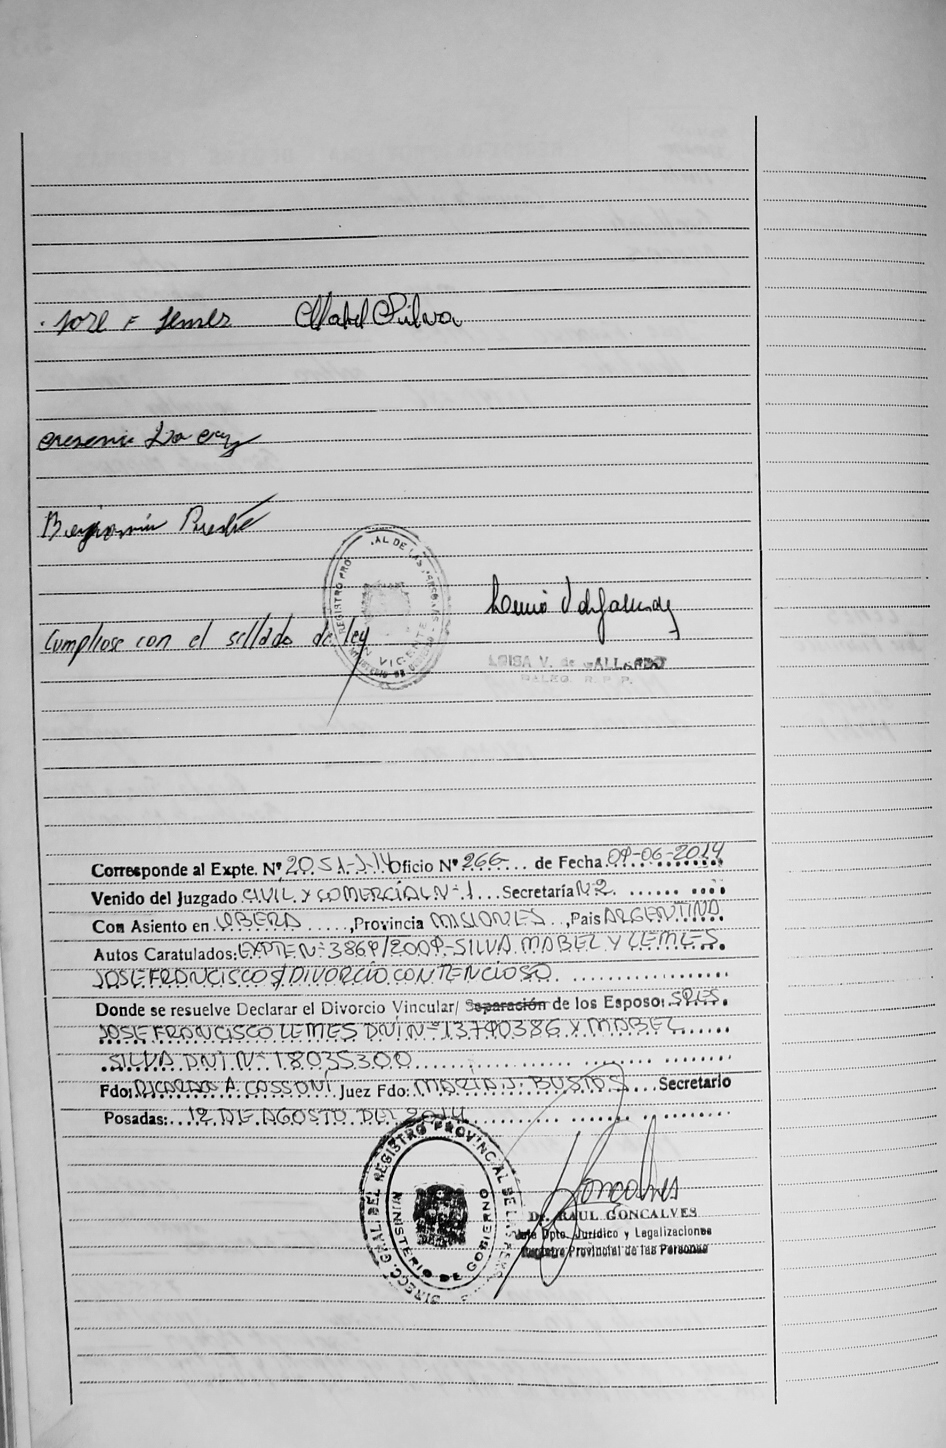 Jose F Lemes Mabel Silva
Benjamin
REGISTRO PROVINCIAL DE LAS PERSONAS
Cumpliose con el sellado de ley
V. de GALLARDO
R. P. P.
Corresponde al Expte. Nº 2051-J-14 Oficio Nº 266 de Fecha 09-06-2014
Venido del Juzgado CIVIL Y COMERCIAL Nº 1 Secretaría Nº2
Con Asiento en OBERA, Provincia MISIONES, País ARGENTINA
Autos Caratulados: EXPTE Nº 3869/2009-SILVA MABEL Y LEMES
JOSE FRANCISCO S/DIVORCIO CONTENCIOSO
Donde se resuelve Declarar el Divorcio Vincular/ Separación de los Esposo: SRES.
JOSE FRANCISCO LEMES DNI Nº 13790386 Y MABEL
SILVA DNI Nº 18035300
Fdo: RICARDO A. CASSONI Juez Fdo: MARIA J. BUSTOS Secretario
Posadas: 12 DE AGOSTO DEL 2014
DIRECC. GRAL. DEL REGISTRO PROVINCIAL DE LAS PERS.
MINISTERIO DE GOBIERNO
Goncalves
Dr. RAUL GONCALVES
Jefe Dpto. Jurídico y Legalizaciones
Registro Provincial de las Personas